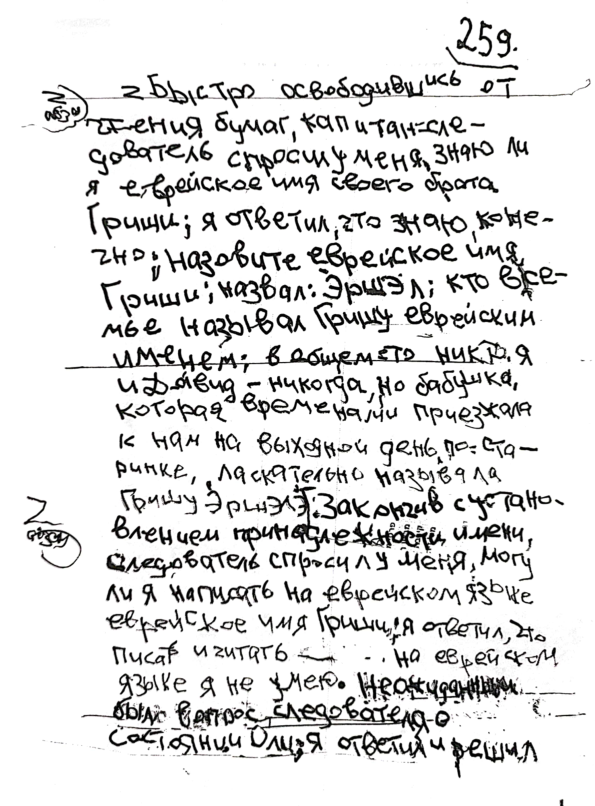 259.
Z Быстро освободившись от
Z
абзац
чтения бумаг, капитан-сле-
дователь спросил у меня, знаю ли
я еврейское имя своего брата
Гриши; я ответил, что знаю, коне-
чно; назовите еврейское имя
Гриши; назвал: Эршэл; кто в се-
мье называл Гришу еврейским
именем; в общем-то никто. я
и Давид - никогда, но бабушка,
которая временами приезжала
к нам на выходной день, по-ста-
ринке, ласкательно называла
Гришу Эршэлэ. Закончив с устано-
Z
абзац
влением принадлежности имени,
следователь спросил у меня, могу
ли я написать на еврейском языке
еврейское имя Гриши; я ответил, что
писать и читать на еврейском
языке я не умею. Неожиданным
был вопрос следователя о
состоянии Оли; я ответил и решил